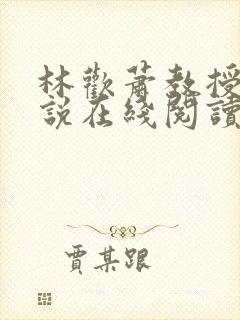 林歡蕭教授
說在綫閱讀
賈某跟